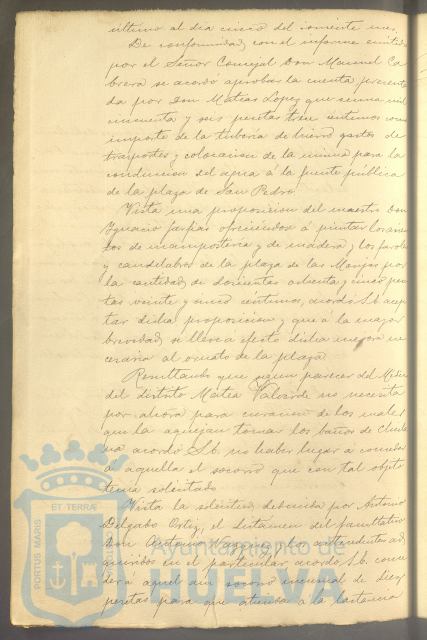 último al día cinco del corriente mes.
De conformidad con el informe emitido
por el Señor Concejal Don Manuel Ca
brera se acordó aprobar la cuenta presenta
da por Don Matias Lopez que suma mil
cincuenta y seis pesetas tres céntimos como
importe de la tubería de hierro gastos de
trasportes y colocacion de la misma para la
conduccion del agua á la fuente pública
de la plaza de San Pedro.
Vista una proposicion del maestro Don
Ignacio ofreciendo á pintar los
de mamposteria y de madera y los faroles
y candelabros de la plaza de las Monjas por
la cantidad de doscientas ochenta y cinco pese
tas veinte y cinco céntimos, acordó S.E. acep
tar dicha proposicion y que á la mayor
brevedad se lleve á efecto dicha mejora ne
cesaria al ornato de la plaza.
Resultando que segun parecer del Médico
del distrito Matea Valverde no necesita
por ahora para curarse de los males
que la aquejan tomar los baños de
acordó S.E. no haber lugar á conceder
á aquella el socorro que con tal objeto
tenia solicitado.
Vista la solicitud deducida por Antonio
Delgado Ortiz, el dictamen del facultativo
Don Antonio y los antecedentes ad
quiridos en el particular acordó S.E. conce
der á aquel un socorro mensual de diez
pesetas para que atienda á la lactancia
PORTUS MARIS
ET TERRAE
Ayuntamiento de
HUELVA